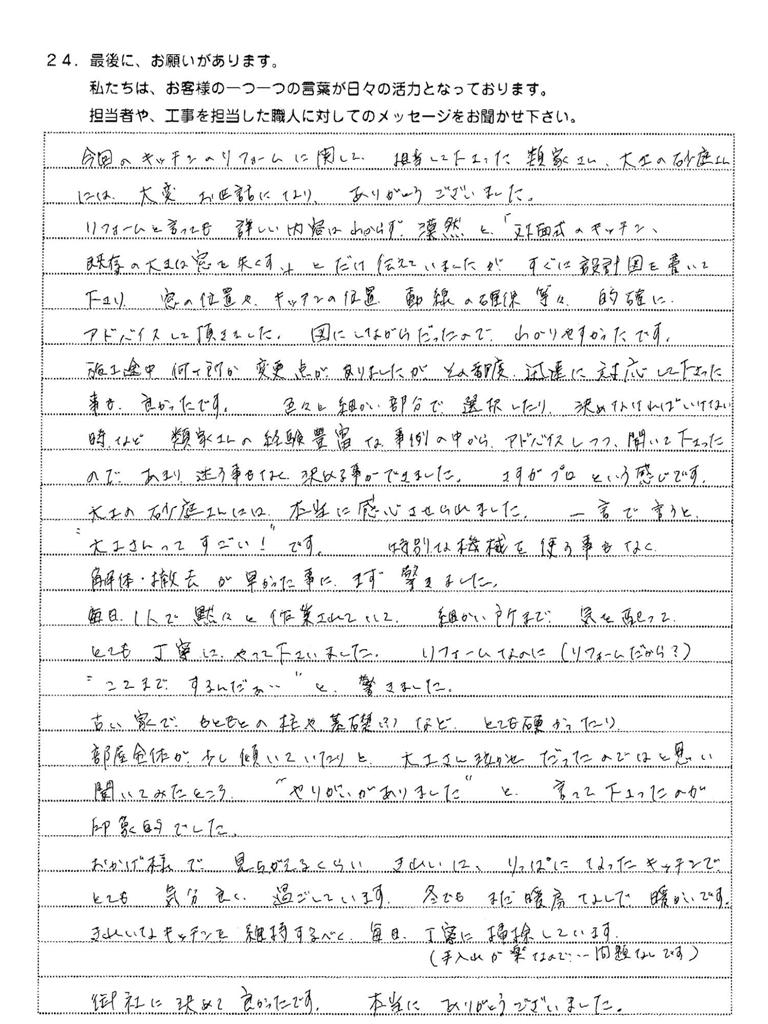 24．最後に、お願いがあります。
私たちは、お客様の一つ一つの言葉が日々の活力となっております。
担当者や、工事を担当した職人に対してのメッセージをお聞かせ下さい。
今回のキッチンのリフォームに関して、担当して下さった類家さん、大工の砂庭さん
には、大変 お世話になり、ありがとうございました。
リフォームと言っても 詳しい内容はわからず、漠然と、「対面式のキッチン、
既存の大きな窓を失くす」とだけ伝えていましたが すぐに設計図を書いて
下さり 窓の位置や、キッチンの位置 動線の確保 等々、的確に、
アドバイスして頂きました。 図にしながらだったので、わかりやすかったです。
施工途中 何ヶ所か 変更点が、ありましたが、その都度、迅速に 対応して下さった
事も 良かったです。 色々と細かい部分で 選択したり、決めなければいけない
時など 類家さんの経験豊富な事例の中から、アドバイスしつつ、聞いて下さった
ので、あまり 迷う事もなく 決める事ができました。 さすがプロ という感じです。
大工の 砂庭さんには、本当に感心させられました。 一言で言うと、
"大工さんって すごい！"です。 特別な機械を使う事もなく
解体・撤去が早かった事に、まず 驚きました。
毎日、1人で 黙々と 作業されていて、 細かい所まで 気を配って、
とても 丁寧に、やって下さいました。 リフォームなのに（リフォームだから？）
"ここまで するんだぁ…"と、驚きました。
古い家で、もともとの柱や基礎(?)など、とても硬かったり、
部屋全体が、少し傾いていたりと、大工さん泣かせ だったのではと思い
聞いてみたところ、"やりがいがありました"と、言って下さったのが
印象的でした。
おかげ様で、見ちがえるくらい きれいに、りっぱに なったキッチンで、
とても 気分良く 過ごしています。 冬でも まだ暖房なしで 暖かいです。
きれいなキッチンを維持するべく、毎日、丁寧に掃除しています。
（手入れが楽なので…問題なしです）
御社に決めて良かったです。 本当に ありがとうございました。